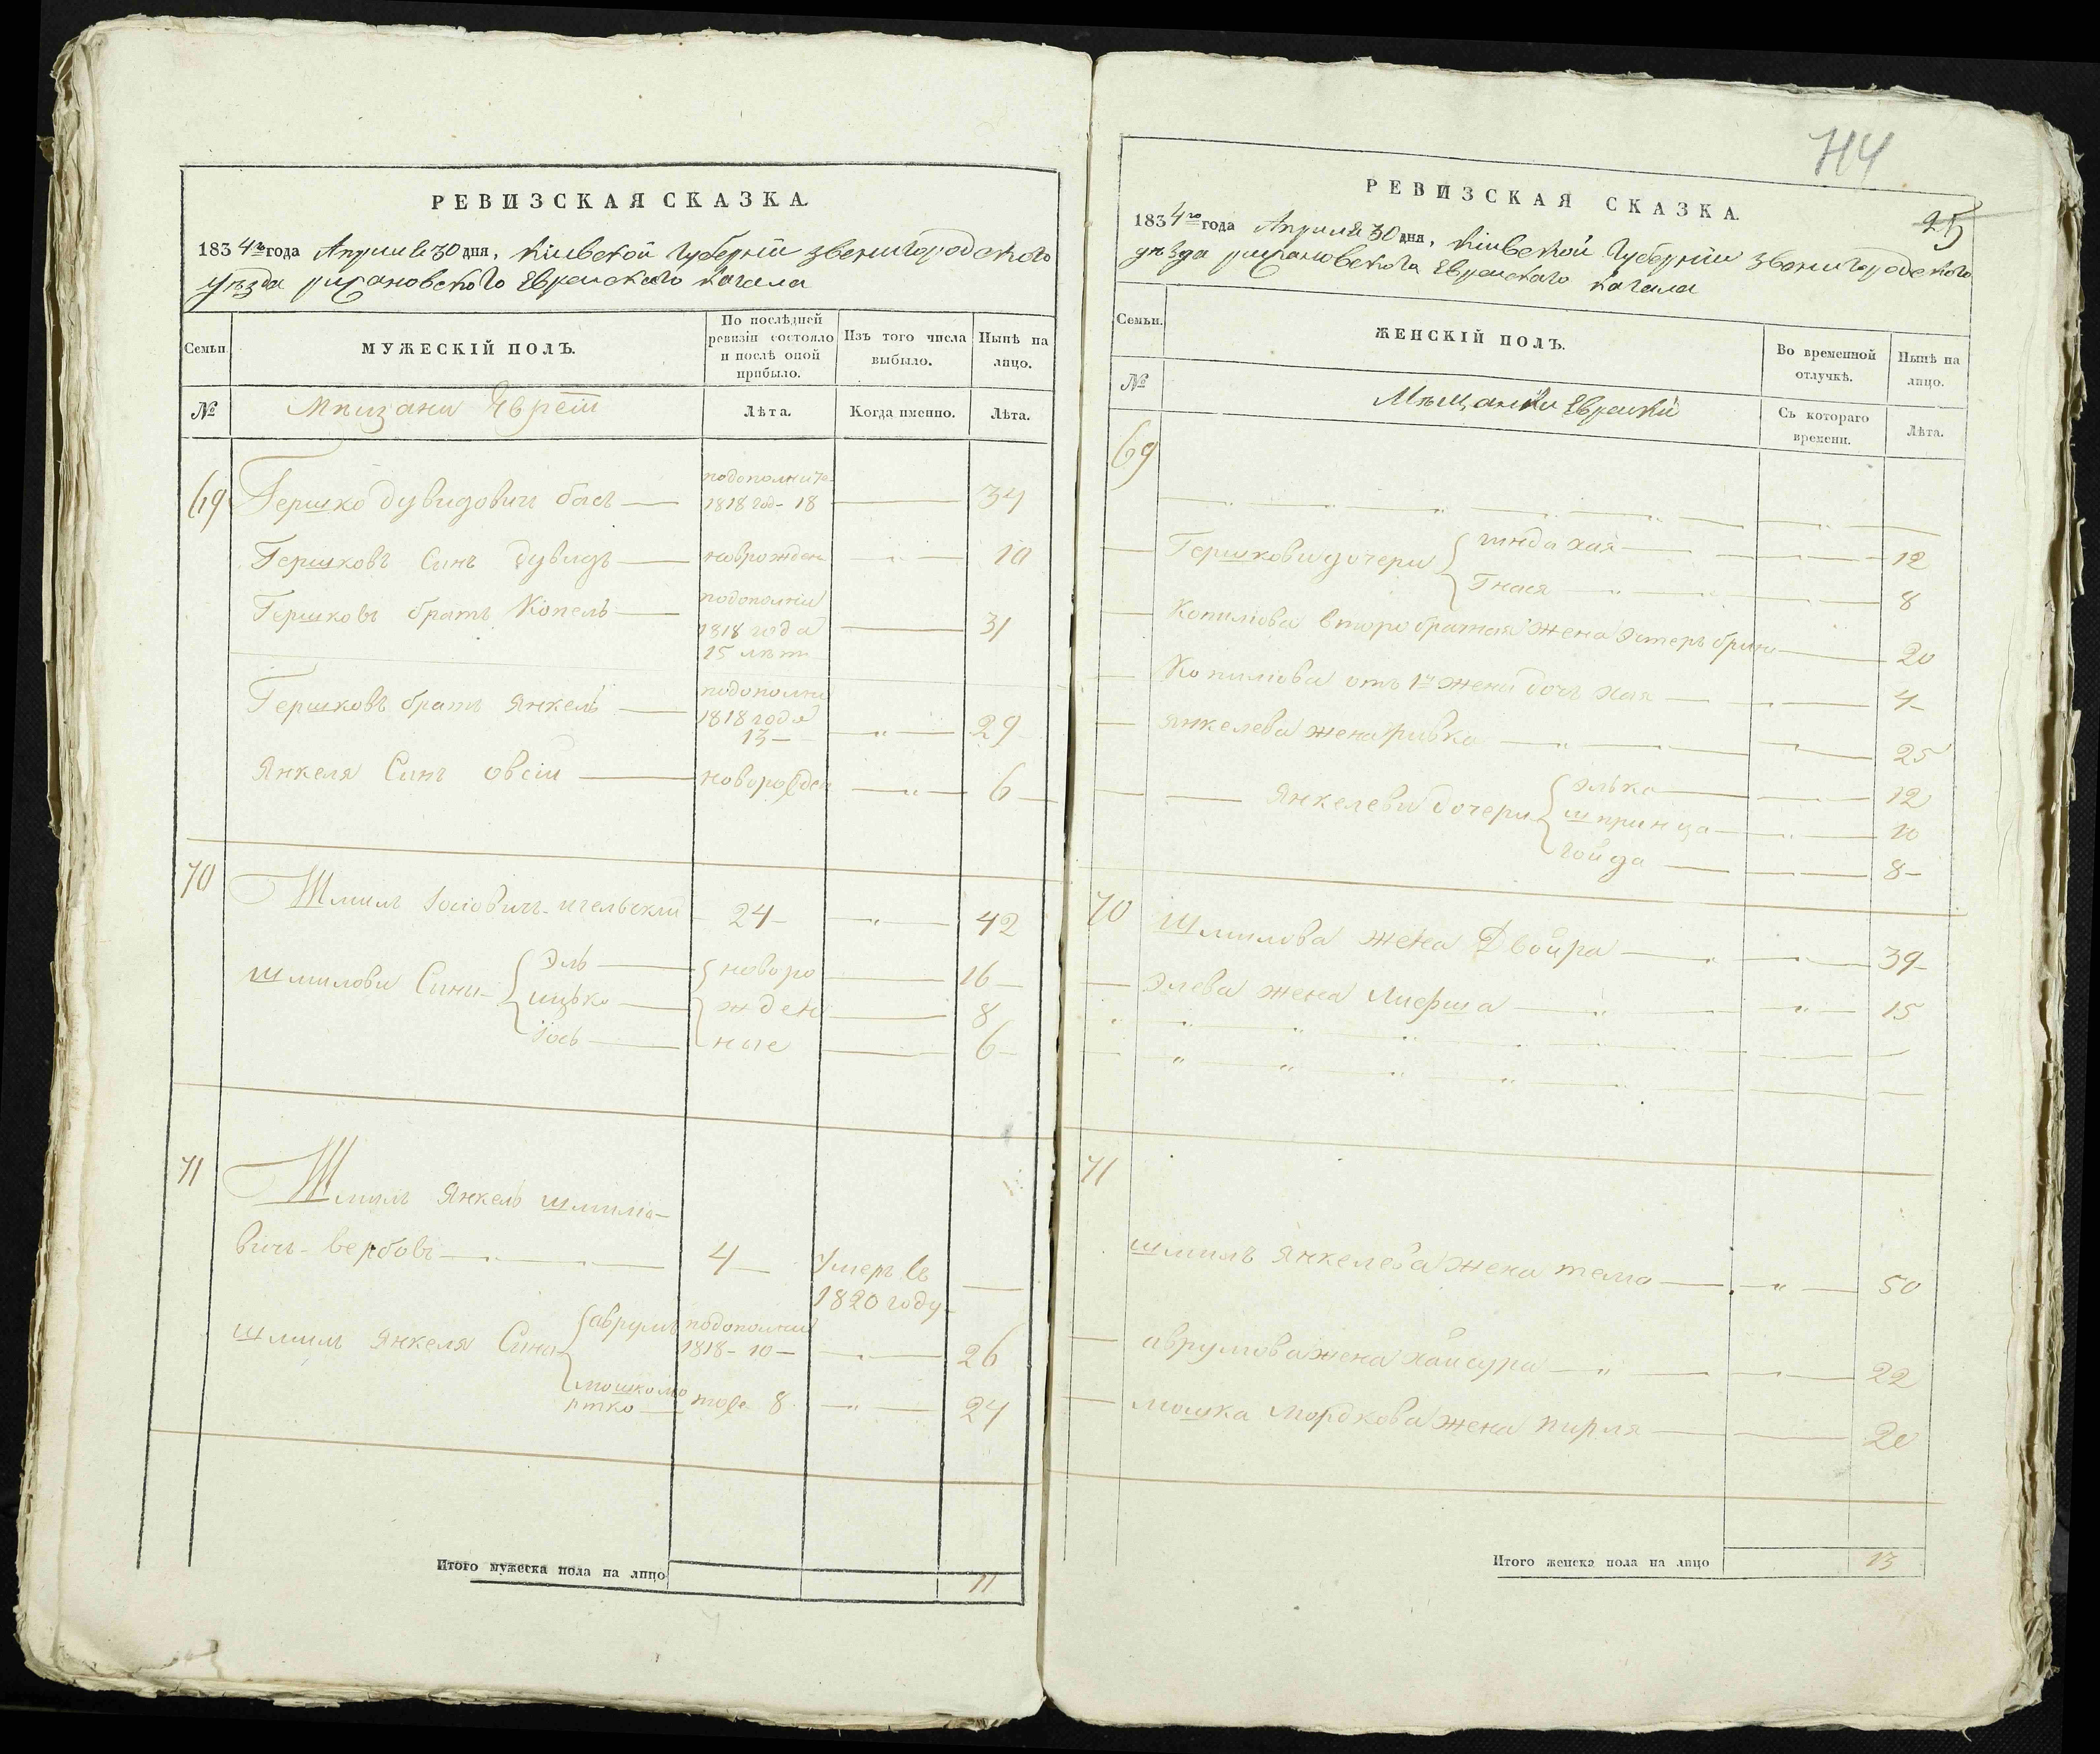 РЕВИЗСКАЯ СКАЗКА.
1834го года Апреля 30 дня, Кіевской Губерніи Звенигородского
уезда рижановского Еврейского кагала
Семьи.
МУЖЕСКІЙ ПОЛЪ.
По послѣдней ревизіи состояло и послѣ оной прибыло.
Изъ того числа выбыло.
Нынѣ на лицо.
№
Мещани Евреи
Лѣта.
Когда именно.
Лѣта.
69 Гершко Дувидовичъ — 1818 год - 18 — 34
Гершковъ Синъ Дувидъ — новрожден — 10
Гершковъ братъ Копель — 1818 года 15 летъ — 31
Гершковъ братъ Янкель — 1818 года 13 — 29
Янкеля Синъ овсій — новорожден — 6
70 Шмиль Іосіовичъ — 24 — 42
Шмилови Сини Эль — новоро — 16
ицько — жден — 8
Іось — ные — 6
71 Шмиль Янкель шмиліо-
вичъ - вербовъ — 4 — Умеръ въ
1820 году
Шмиль Янкеля Сина аврумъ 1818 - 10 — 26
мошко мо
ртко — тоже 8 — 24
Итого мужеска пола на лицо 11
44
25
РЕВИЗСКАЯ СКАЗКА.
1834го года Апреля 30 дня, Кіевской Губерніи Звенигородского
уезда рижановского Еврейского кагала
Семьи.
ЖЕНСКІЙ ПОЛЪ.
Во временной отлучкѣ.
Нынѣ на лицо.
№
Мещанки Еврейки
Съ котораго времени.
Лѣта.
69
Гершкови дочери гинда хая — 12
Гнася — 8
Копиліова второбратная жена Эстеръ — 20
Копиліова отъ 1й жени дочъ хая — 4
Янкелева жена ривка — 25
Янкелеви дочери элька — 12
шпринца — 10
гойда — 8
70 Шмилова жена Двойра — 39
Элева жена — 15
71
шмиль Янкелева жена тема — 50
аврумова жена хайсура — 22
мошка Мордкова жена пирля — 20
Итого женска пола на лицо 13